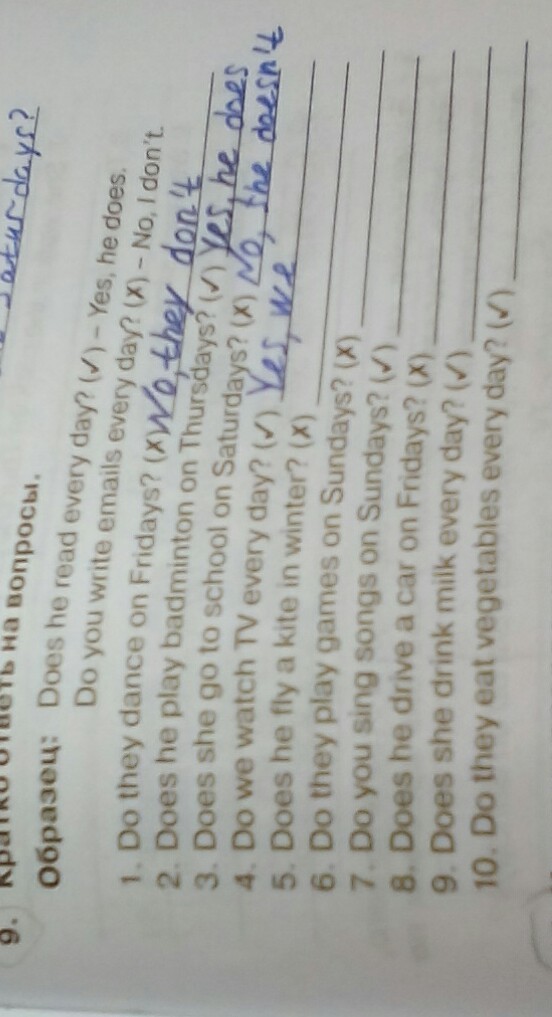 атurdays?
9. Кратко ответь на вопросы.
Образец: Does he read every day? (✓) – Yes, he does.
Do you write emails every day? (X) – No, I don't.
1. Do they dance on Fridays? (X) No, they don't
2. Does he play badminton on Thursdays? (✓) Yes, he does
3. Does she go to school on Saturdays? (X) No, she doesn't
4. Do we watch TV every day? (✓) Yes, we
5. Does he fly a kite in winter? (X)
6. Do they play games on Sundays? (X)
7. Do you sing songs on Sundays? (✓)
8. Does he drive a car on Fridays? (X)
9. Does she drink milk every day? (✓)
10. Do they eat vegetables every day? (✓)